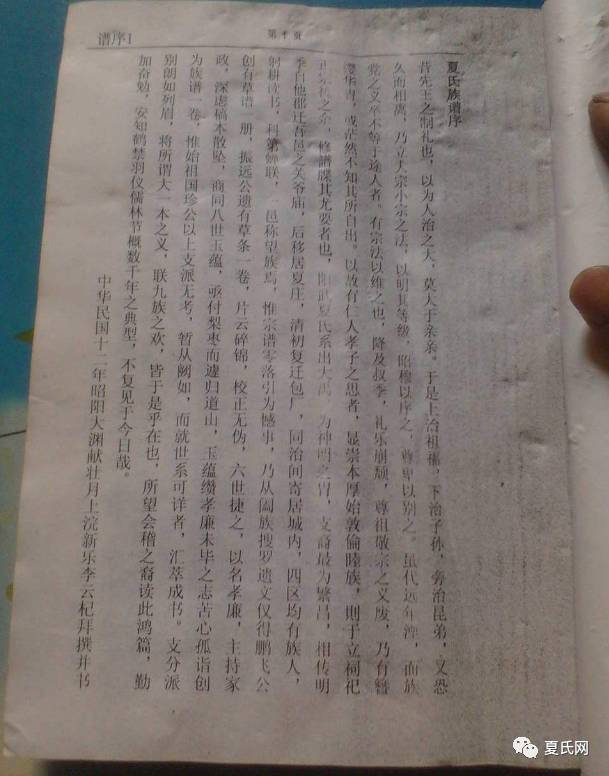 谱序1
第1页
夏氏族谱序
昔先王之制礼也，以为人治之大，莫大于亲亲。于是上治祖祢，下治子孙，旁治昆弟，又恐
久而相离，乃立大宗小宗之法，以明其等级，昭穆以序之，尊卑以别之。虽代远年湮，而族
党之义终不等于途人者。有宗法以维之也，降及叔季，礼乐崩颓，尊祖敬宗之义废，乃有簪
缨华胄，或茫然不知其所自出。以故有仁人孝子之思者，显崇本厚始敦倫睦族，则于立祠祀
之余，修譜牒其尤要者也，夏氏系出大禹，为神明之胄，支裔最为繁昌，相传明
季自他郡迁吾邑之关爷庙，后移居夏庄，清初复迁包厂，同治间寄居城内，四区均有族人，
躬耕读书，科第蝉联，一邑称望族焉，惟宗谱零落引为憾事，乃从阖族搜罗遗文仅得鹏飞公
创有草谱一册，振远公遗有草条一卷，片云碎锦，校正无伪，六世捷之，以名孝廉，主持家
政，深虑稿本散坠，商同八世玉蕴，亟付梨枣而遽归道山，玉蕴缵孝廉未毕之志苦心孤诣创
为族谱一卷，惟始祖国珍公以上支派无考，暂从阙如，而就世系可详者，汇萃成书。支分派
别朗如列眉，将所谓大一本之义，联九族之欢，皆于是乎在也，所望会稽之裔读此鸿篇，勤
加奋勉，安知鹤禁羽仪儒林节概数千年之典型，不复见于今日哉。
中华民国十二年昭阳大渊献壮月上浣新乐李云杞拜撰并书
夏氏网